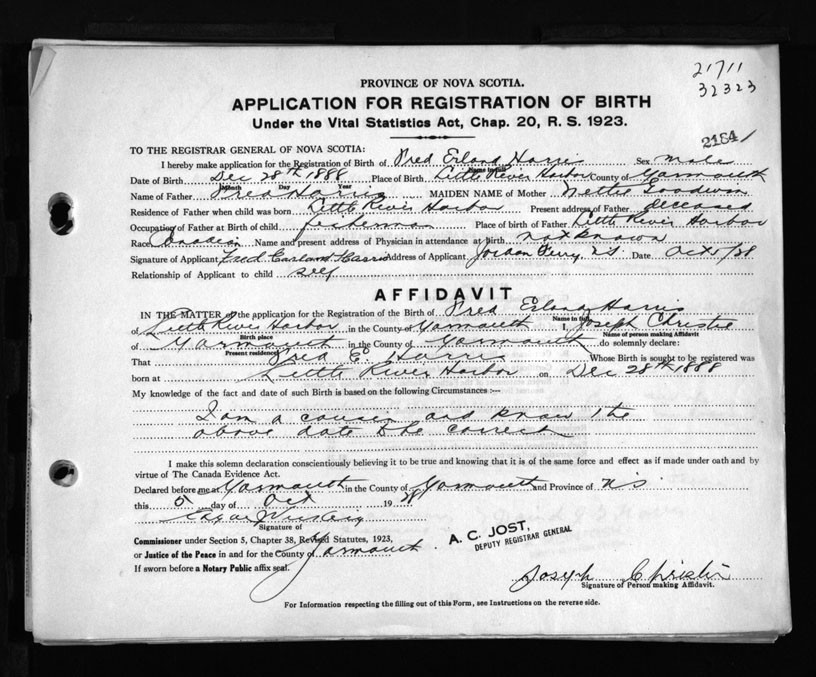 21711
32323
PROVINCE OF NOVA SCOTIA.
APPLICATION FOR REGISTRATION OF BIRTH
Under the Vital Statistics Act, Chap. 20, R. S. 1923.
2164/
TO THE REGISTRAR GENERAL OF NOVA SCOTIA:
I hereby make application for the Registration of Birth of Fred Erland Harris Sex male
Name in full
Date of Birth Dec 28th 1888 Place of Birth Little River Harbor County of Yarmouth
Month Day Year
Name of Father Fred Harris MAIDEN NAME of Mother Nettie Goodwin
Residence of Father when child was born Little River Harbor Present address of Father deceased
Occupation of Father at Birth of child fisherman Place of birth of Father Little River Harbor
Race Name and present address of Physician in attendance at birth not known
Signature of Applicant Fred Harris Address of Applicant Jordan Ferry N.S. Date Oct 5/38
Relationship of Applicant to child self
AFFIDAVIT
IN THE MATTER of the application for the Registration of the Birth of Fred Erland Harris
Name in full
of Little River Harbor in the County of Yarmouth I, Joseph Christie
Birth place Name of person making Affidavit
of Yarmouth in the County of Yarmouth do solemnly declare:
Present residence
That Fred E. Harris Whose Birth is sought to be registered was
born at Little River Harbor on Dec 28th 1888
My knowledge of the fact and date of such Birth is based on the following Circumstances :—
I am a cousin and know the
above date to be correct
I make this solemn declaration conscientiously believing it to be true and knowing that it is of the same force and effect as if made under oath and by
virtue of The Canada Evidence Act.
Declared before me at Yarmouth in the County of Yarmouth and Province of N S
this 5 day of Oct 19 38
Signature of
Commissioner under Section 5, Chapter 38, Revised Statutes, 1923,
or Justice of the Peace in and for the County of Yarmouth.
If sworn before a Notary Public affix seal.
A. C. JOST,
DEPUTY REGISTRAR GENERAL
Joseph Christie
Signature of Person making Affidavit.
For Information respecting the filling out of this Form, see Instructions on the reverse side.